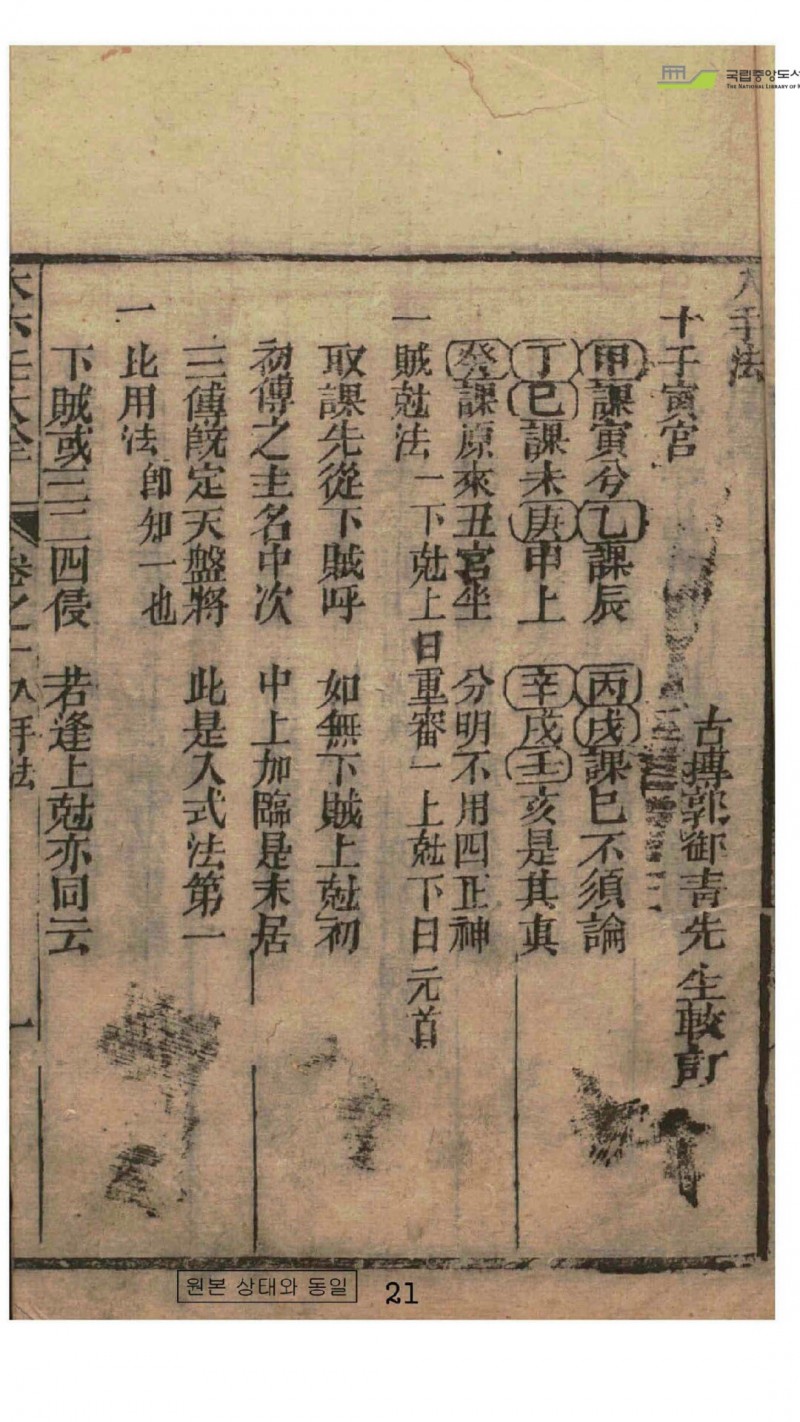 국립중앙도서
THE NATIONAL LIBRARY OF
入手法
古摶郭御青先生較訂
十干寅宮
甲課寅兮乙課辰 丙戊課巳不須論
丁巳課未庚申上 辛戌壬亥是其眞
癸課原來丑宮坐 分明不用四正神
一賊尅法 一下尅上曰重審一上尅下曰元首
取課先從下賊呼 如無下賊上尅初
初傳之主名中次 中上加臨是末居
三傳旣定天盤將 此是入式法第一
一比用法 卽知一也
下賊或三二四侵 若逢上尅亦同云
大六壬大全 卷之二 入手法 一
원본 상태와 동일
21